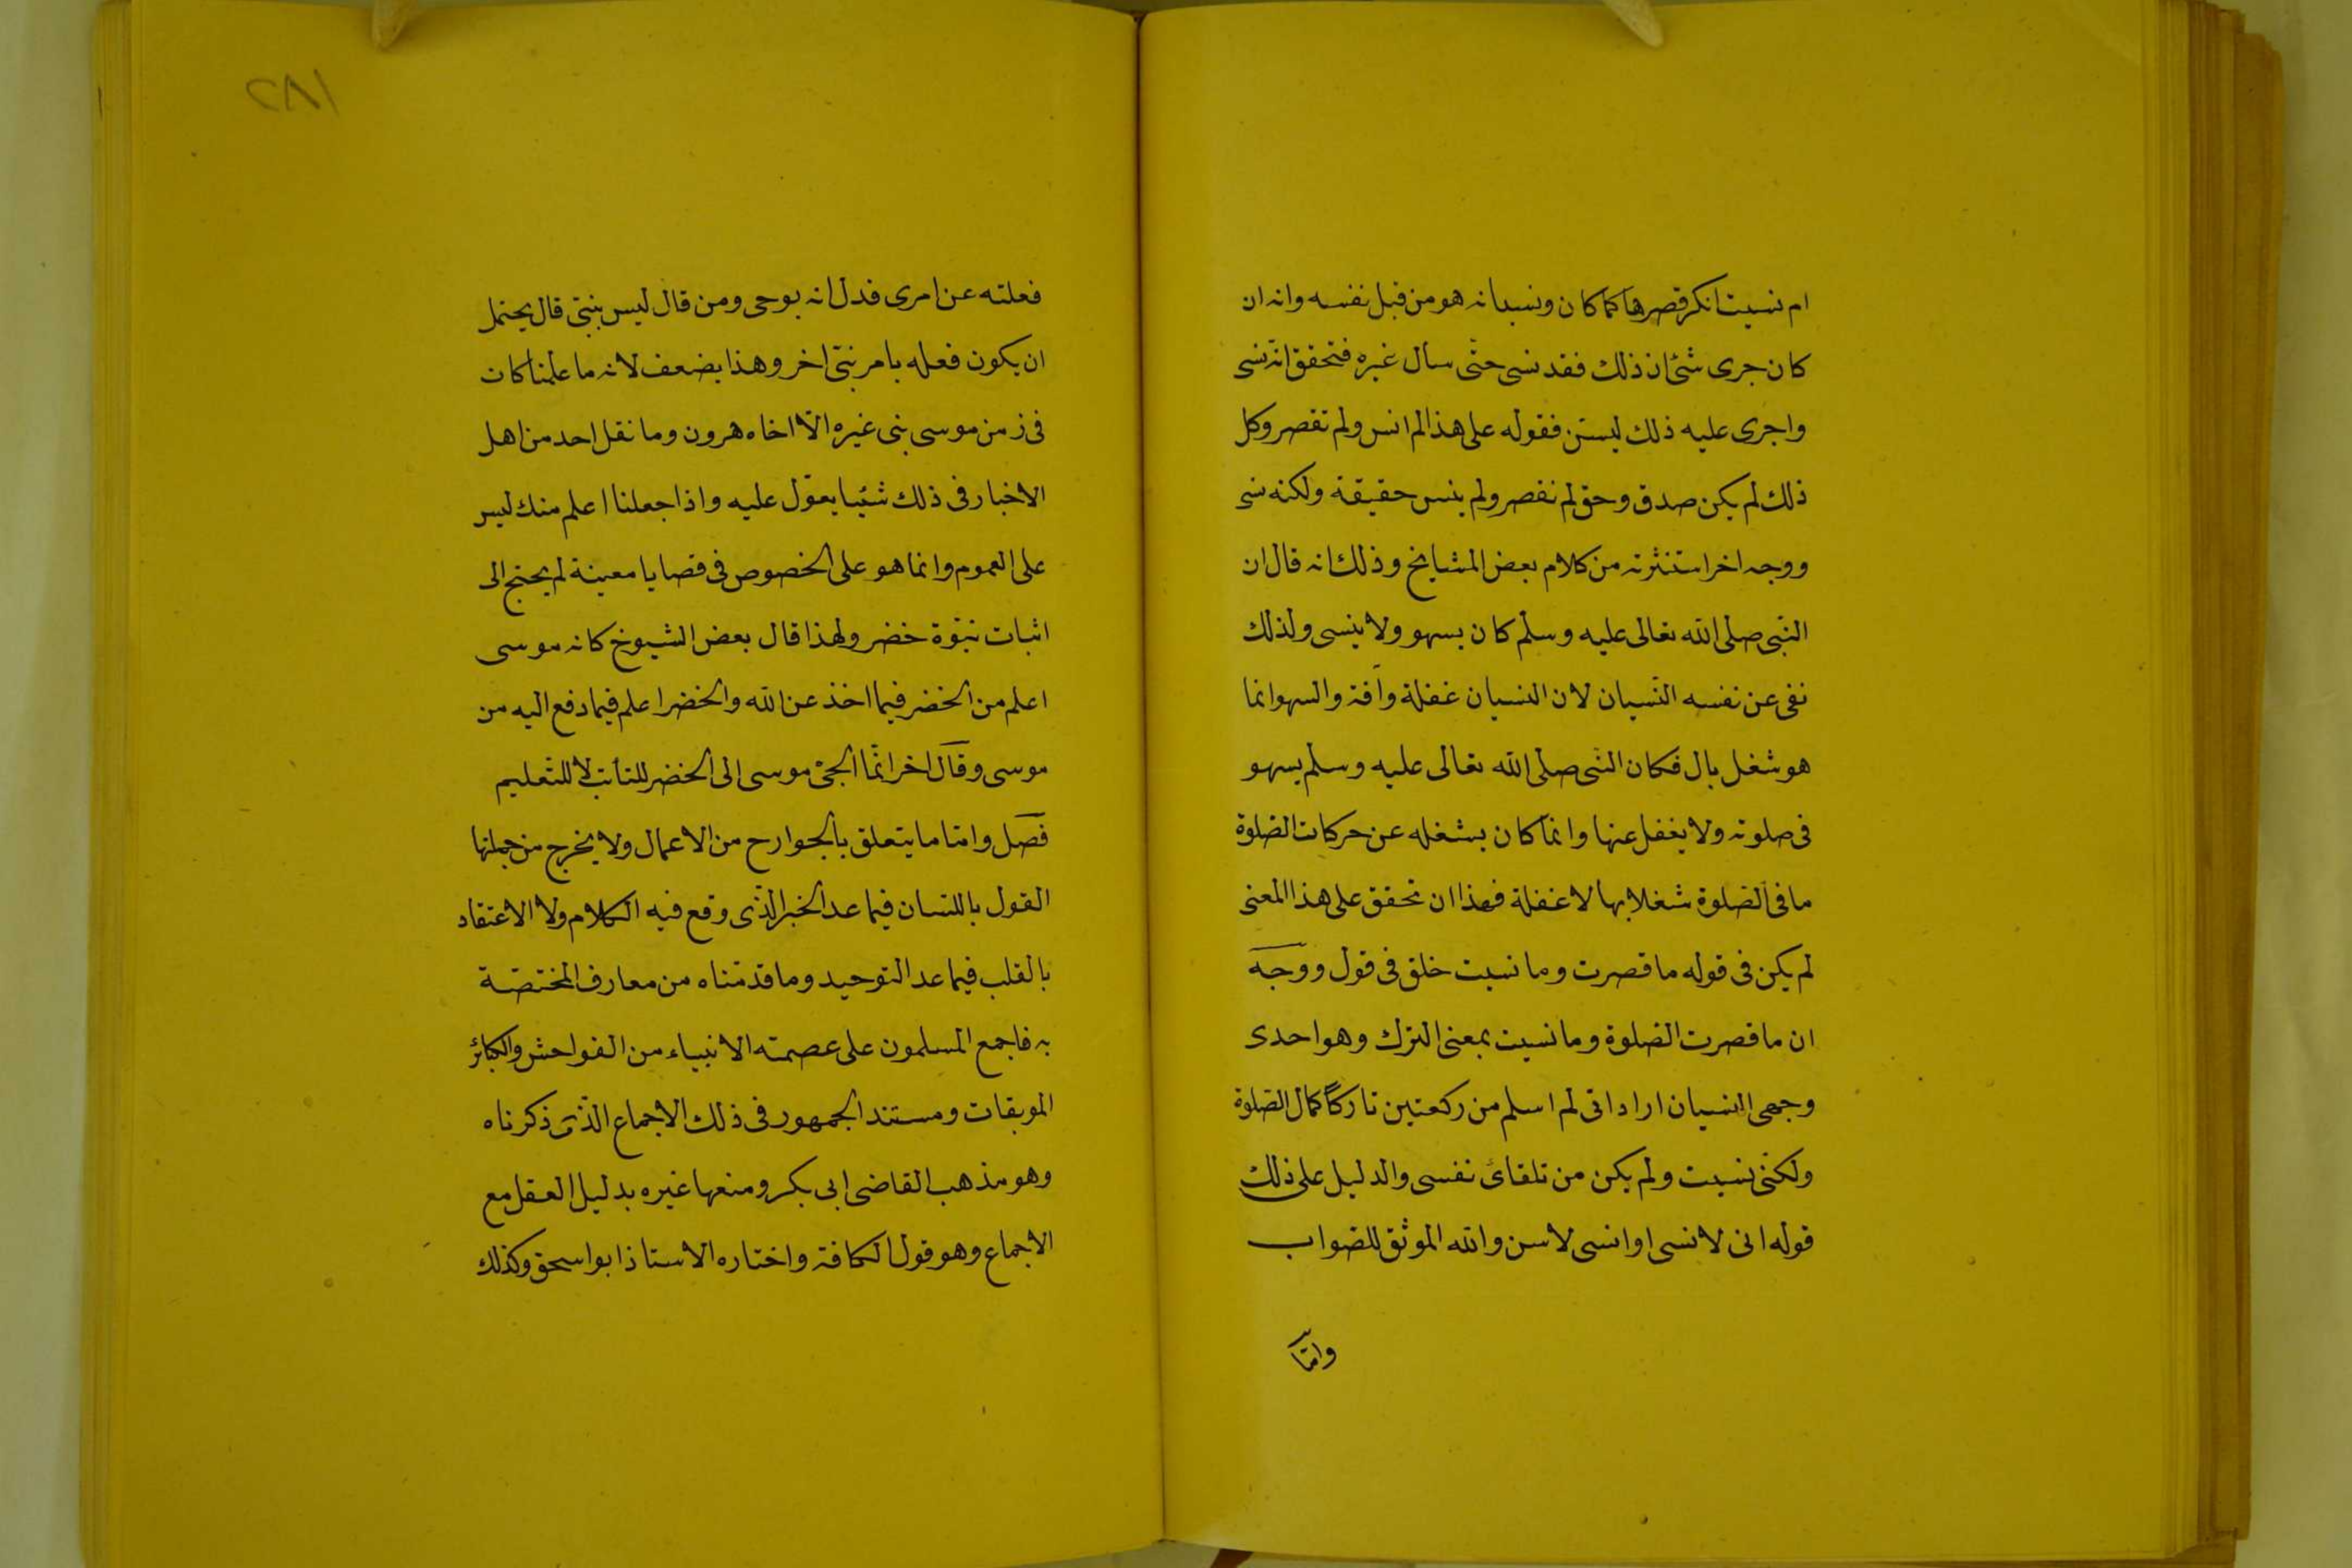 ام نسيت انكر قصرها كما كان ونسيانه هو من قبل نفسه وانه ان
كان جرى شئ ان ذلك فقد نسى حتّى سأل غيره فتحقق انّه نسى
واجرى عليه ذلك ليستن فقوله على هذا لم انس ولم تقصر وكل
ذلك لم يكن صدق وحق لم نقصر ولم ينس حقيقة ولكنه نسى
ووجه اخر استنثرته من كلام بعض المشايخ وذلك انه قال ان
النّبى صلى الله تعالى عليه وسلّم كان يسهو ولا ينسى ولذلك
نفى عن نفسه النّسيان لان النسيان غفلة وآفة والسهو انما
هو شغل بال فكان النّبى صلى الله تعالى عليه وسلم يسهو
فى صلوته ولا يغفل عنها وانما كان يشغله عن حركات الصّلوة
ما فى الصّلوة شغلا بها لا غفلة فهذا ان تحقق على هذا المعنى
لم يكن فى قوله ما قصرت وما نسيت خلق فى قول ووجه
ان ما قصرت الصّلوة وما نسيت بمعنى الترك وهو احدى
وجهى النسيان اراد انى لم اسلم من ركعتين تاركًا كمال الصّلوة
ولكنّى نسيت ولم يكن من تلقائ نفسى والدليل على ذلك
قوله انى لا نسى او انسى لاسن والله الموثق للصّواب
وامّا
٢٨١
فعلته عن امرى فدل انه بوحى ومن قال ليس بنبّى قال يحتمل
ان يكون فعله بامر نبّى اخر وهذا يضعف لانه ما علمنا كان
فى زمن موسى نبى غيره الّا اخاه هرون وما نقل احد من اهل
الاخبار فى ذلك شئيا يعوّل عليه واذا جعلنا اعلم منك ليس
على العموم وانما هو على الخصوص فى قصايا معينة لم يحتج الى
اثبات نبّوة خضر ولهذا قال بعض الشيوخ كانه موسى
اعلم من الخضر فيما اخذ عن الله والخضر اعلم فيما دفع اليه من
موسى وقال اخر انّما الجئ موسى الى الخضر للتأدّب لا للتّعليم
فصل وامّا ما يتعلق بالجوارح من الاعمال ولا يخرج من جملتها
القول باللّسان فيما عدا الخبر الّذى وقع فيه الكلام ولا الاعتقاد
بالقلب فيما عدا التوحيد وما قدمّناه من معارف المختصّة
به فاجمع المسلمون على عصمته الانبياء من الفواحش والكبائر
الموبقات ومستند الجمهور فى ذلك الاجماع الّذى ذكرناه
وهو مذهب القاضى ابى بكر ومنعها غيره بدليل العقل مع
الاجماع وهو قول الكافة واختاره الاستاذ ابو اسحق وكذلك